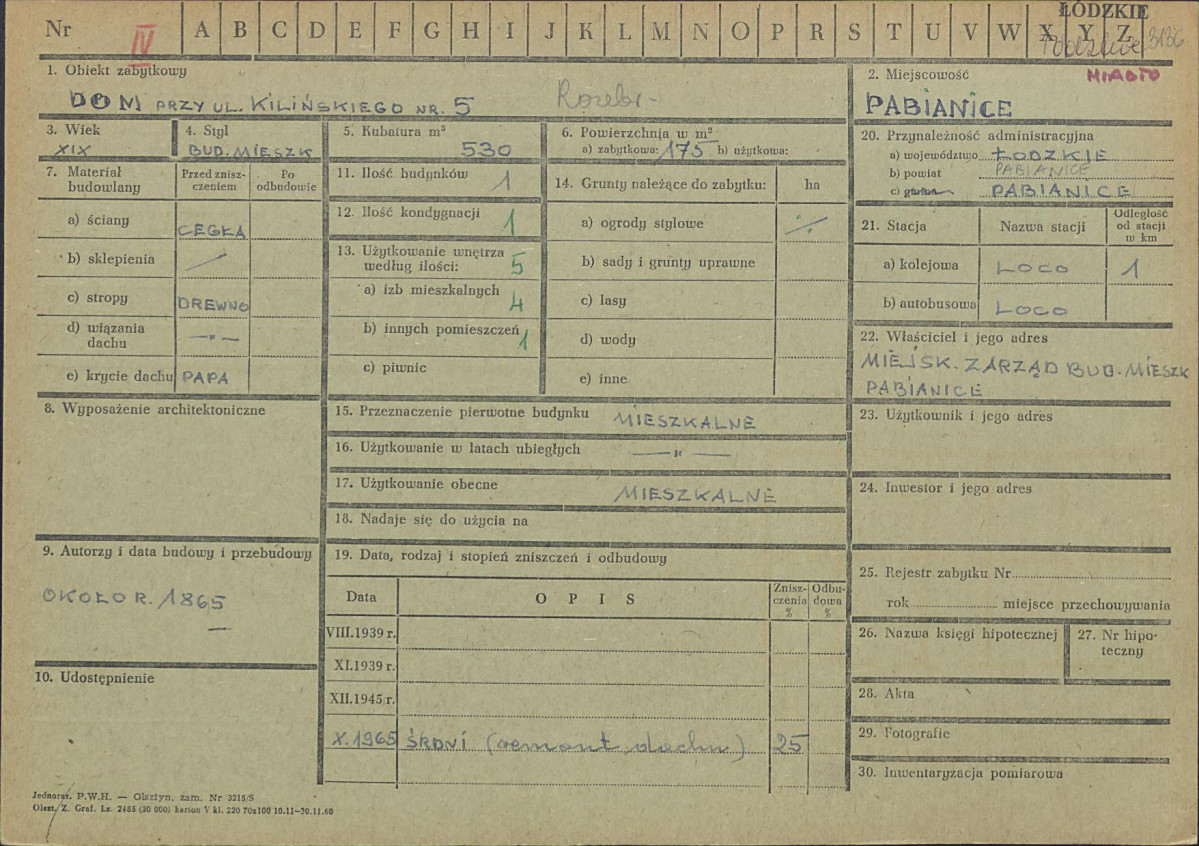 Nr IV A B C D E F G H I J K L M N O P R S T U V W X Y Z ŁÓDZKIE
3136
1. Obiekt zabytkowy
DOM PRZY UL. KILIŃSKIEGO NR. 5 Rozebr.
2. Miejscowość MIASTO
PABIANICE
3. Wiek
XIX
4. Styl
BUD. MIESZK
5. Kubatura m³
530
6. Powierzchnia w m²
a) zabytkowa: 175 b) użytkowa:
7. Materiał budowlany
Przed zniszczeniem
Po odbudowie
a) ściany CEGŁA
b) sklepienia —
c) stropy DREWNO
d) wiązania dachu —"—
e) krycie dachu PAPA
8. Wyposażenie architektoniczne
9. Autorzy i data budowy i przebudowy
OKOŁO R. 1865
—
10. Udostępnienie
11. Ilość budynków 1
12. Ilość kondygnacji 1
13. Użytkowanie wnętrza według ilości: 5
a) izb mieszkalnych 4
b) innych pomieszczeń 1
c) piwnic
14. Grunty należące do zabytku: ha
a) ogrody stylowe ·/·
b) sady i grunty uprawne
c) lasy
d) wody
e) inne
15. Przeznaczenie pierwotne budynku MIESZKALNE
16. Użytkowanie w latach ubiegłych —"—
17. Użytkowanie obecne MIESZKALNE
18. Nadaje się do użycia na
19. Data, rodzaj i stopień zniszczeń i odbudowy
Data OPIS Zniszczenia % Odbudowa %
VIII.1939 r.
XI.1939 r.
XII.1945 r.
X.1965 ŚREDNI (remont dachu) 25
20. Przynależność administracyjna
a) województwo ŁODZKIE
b) powiat PABIANICE
c) gmina PABIANICE
21. Stacja Nazwa stacji Odległość od stacji w km
a) kolejowa LOCO 1
b) autobusowa LOCO
22. Właściciel i jego adres
MIEJSK. ZARZĄD BUD. MIESZK
PABIANICE
23. Użytkownik i jego adres
24. Inwestor i jego adres
25. Rejestr zabytku Nr
rok miejsce przechowywania
26. Nazwa księgi hipotecznej
27. Nr hipoteczny
28. Akta
29. Fotografie
30. Inwentaryzacja pomiarowa
Jednoraz. P.W.H. — Olsztyn, zam. Nr 3215/S
Olszt. Z. Graf. Lz. 2455 (30 000) karton V kl. 220 70x100 10.11—30.11.60